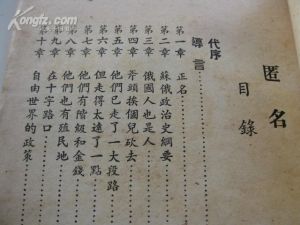 Kongfz.com
匿名
目錄
代序
導言
第一章 正名
第二章 蘇俄政治史綱要
第三章 俄國人也是人
第四章 斧頭挨個兒砍去
第五章 他們已走了一大段路
第六章 但走得太遠了一點
第七章 他們有階級和金錢
第八章 他們也有殖民地
第九章 在十字路口
第十章 自由世界的政策